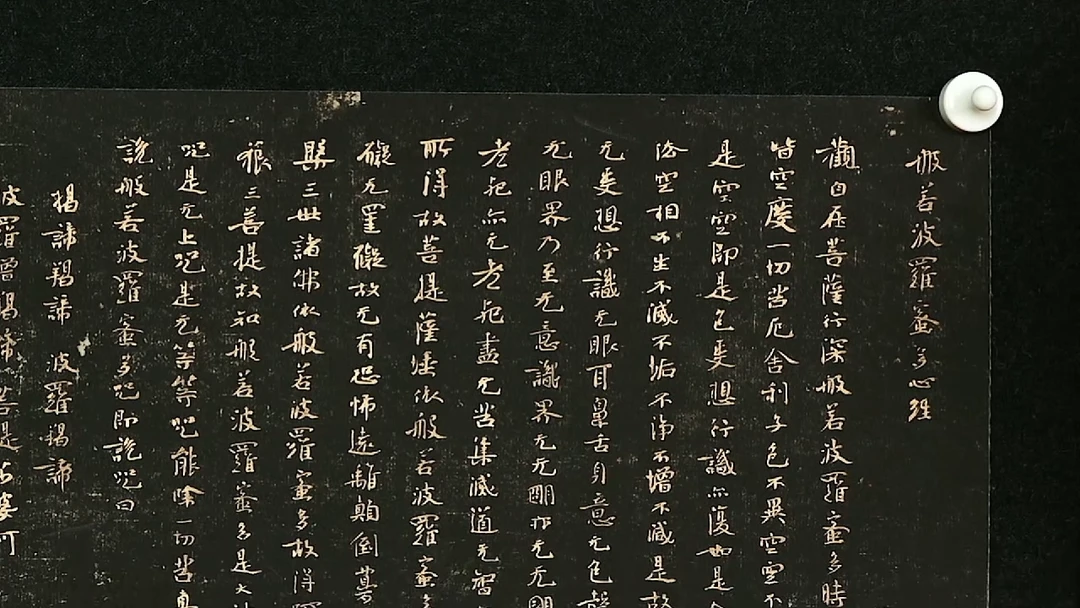 般若波羅蜜多心經
觀自在菩薩行深般若波羅蜜多時
皆空度一切苦厄舍利子色不異空空不
是空空即是色受想行識亦復如是
法空相不生不滅不垢不淨不增不減是故
无受想行識无眼耳鼻舌身意无色聲
无眼界乃至无意識界无无明亦无无明
老死亦无老死盡无苦集滅道无智
所得故菩提薩埵依般若波羅蜜多
礙无罣礙故无有恐怖遠離顛倒夢
槃三世諸佛依般若波羅蜜多故得
藐三菩提故知般若波羅蜜多是大神
咒是无上咒是无等等咒能除一切苦真
說般若波羅蜜多咒即說咒曰
揭諦揭諦 波羅揭諦
波羅僧揭諦菩提莎婆訶